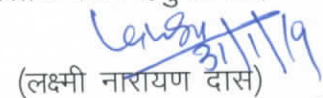 31/1/19
(लक्ष्मी नारायण दास)